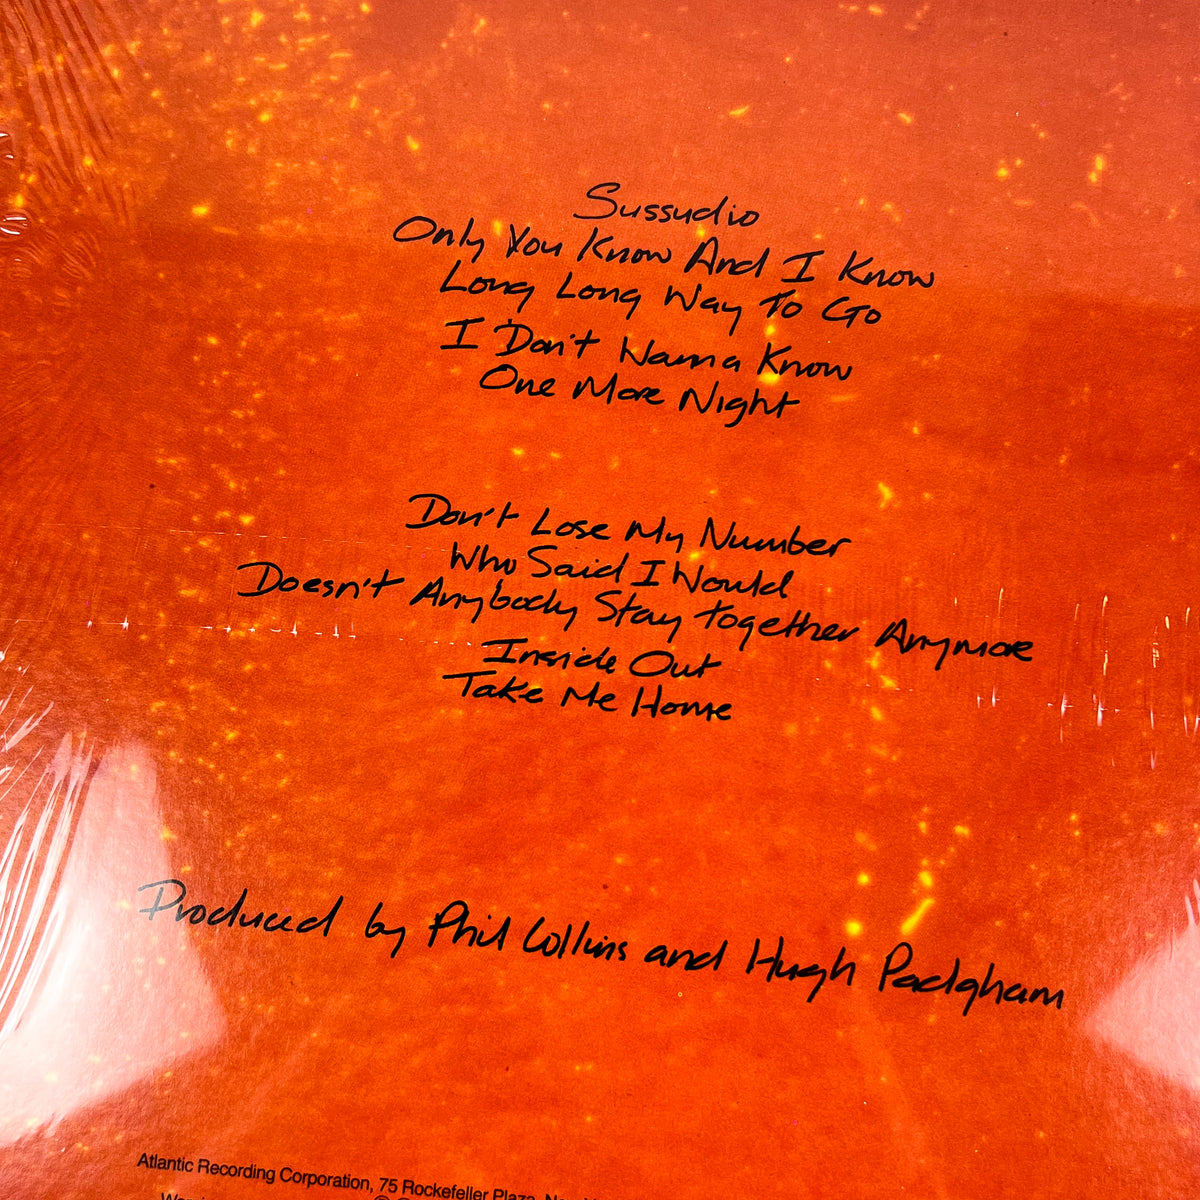 Sussudio
Only You Know And I Know
Long Long Way To Go
I Don't Wanna Know
One More Night
Don't Lose My Number
Who Said I Would
Doesn't Anybody Stay Together Anymore
Inside Out
Take Me Home
Produced by Phil Collins and Hugh Padgham
Atlantic Recording Corporation, 75 Rockefeller Plaza,